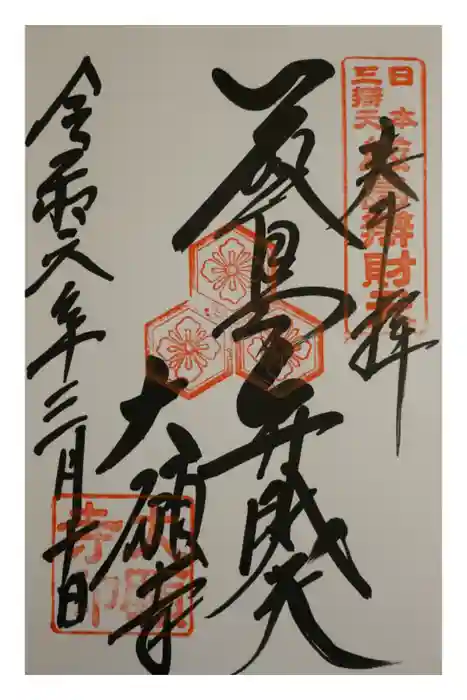 奉拝
日本
三辨天
嚴島辨財天
厳島弁財天
大願寺
大願
寺印
令和六年三月十日